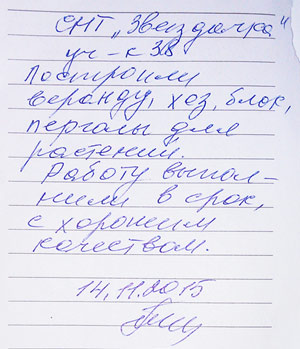 СНТ „Звездочка"
уч-к 38
Построили
веранду, хоз. блок,
перголы для
растений.
Работу выпол-
нили в срок,
с хорошим
качеством.
14.11.2015